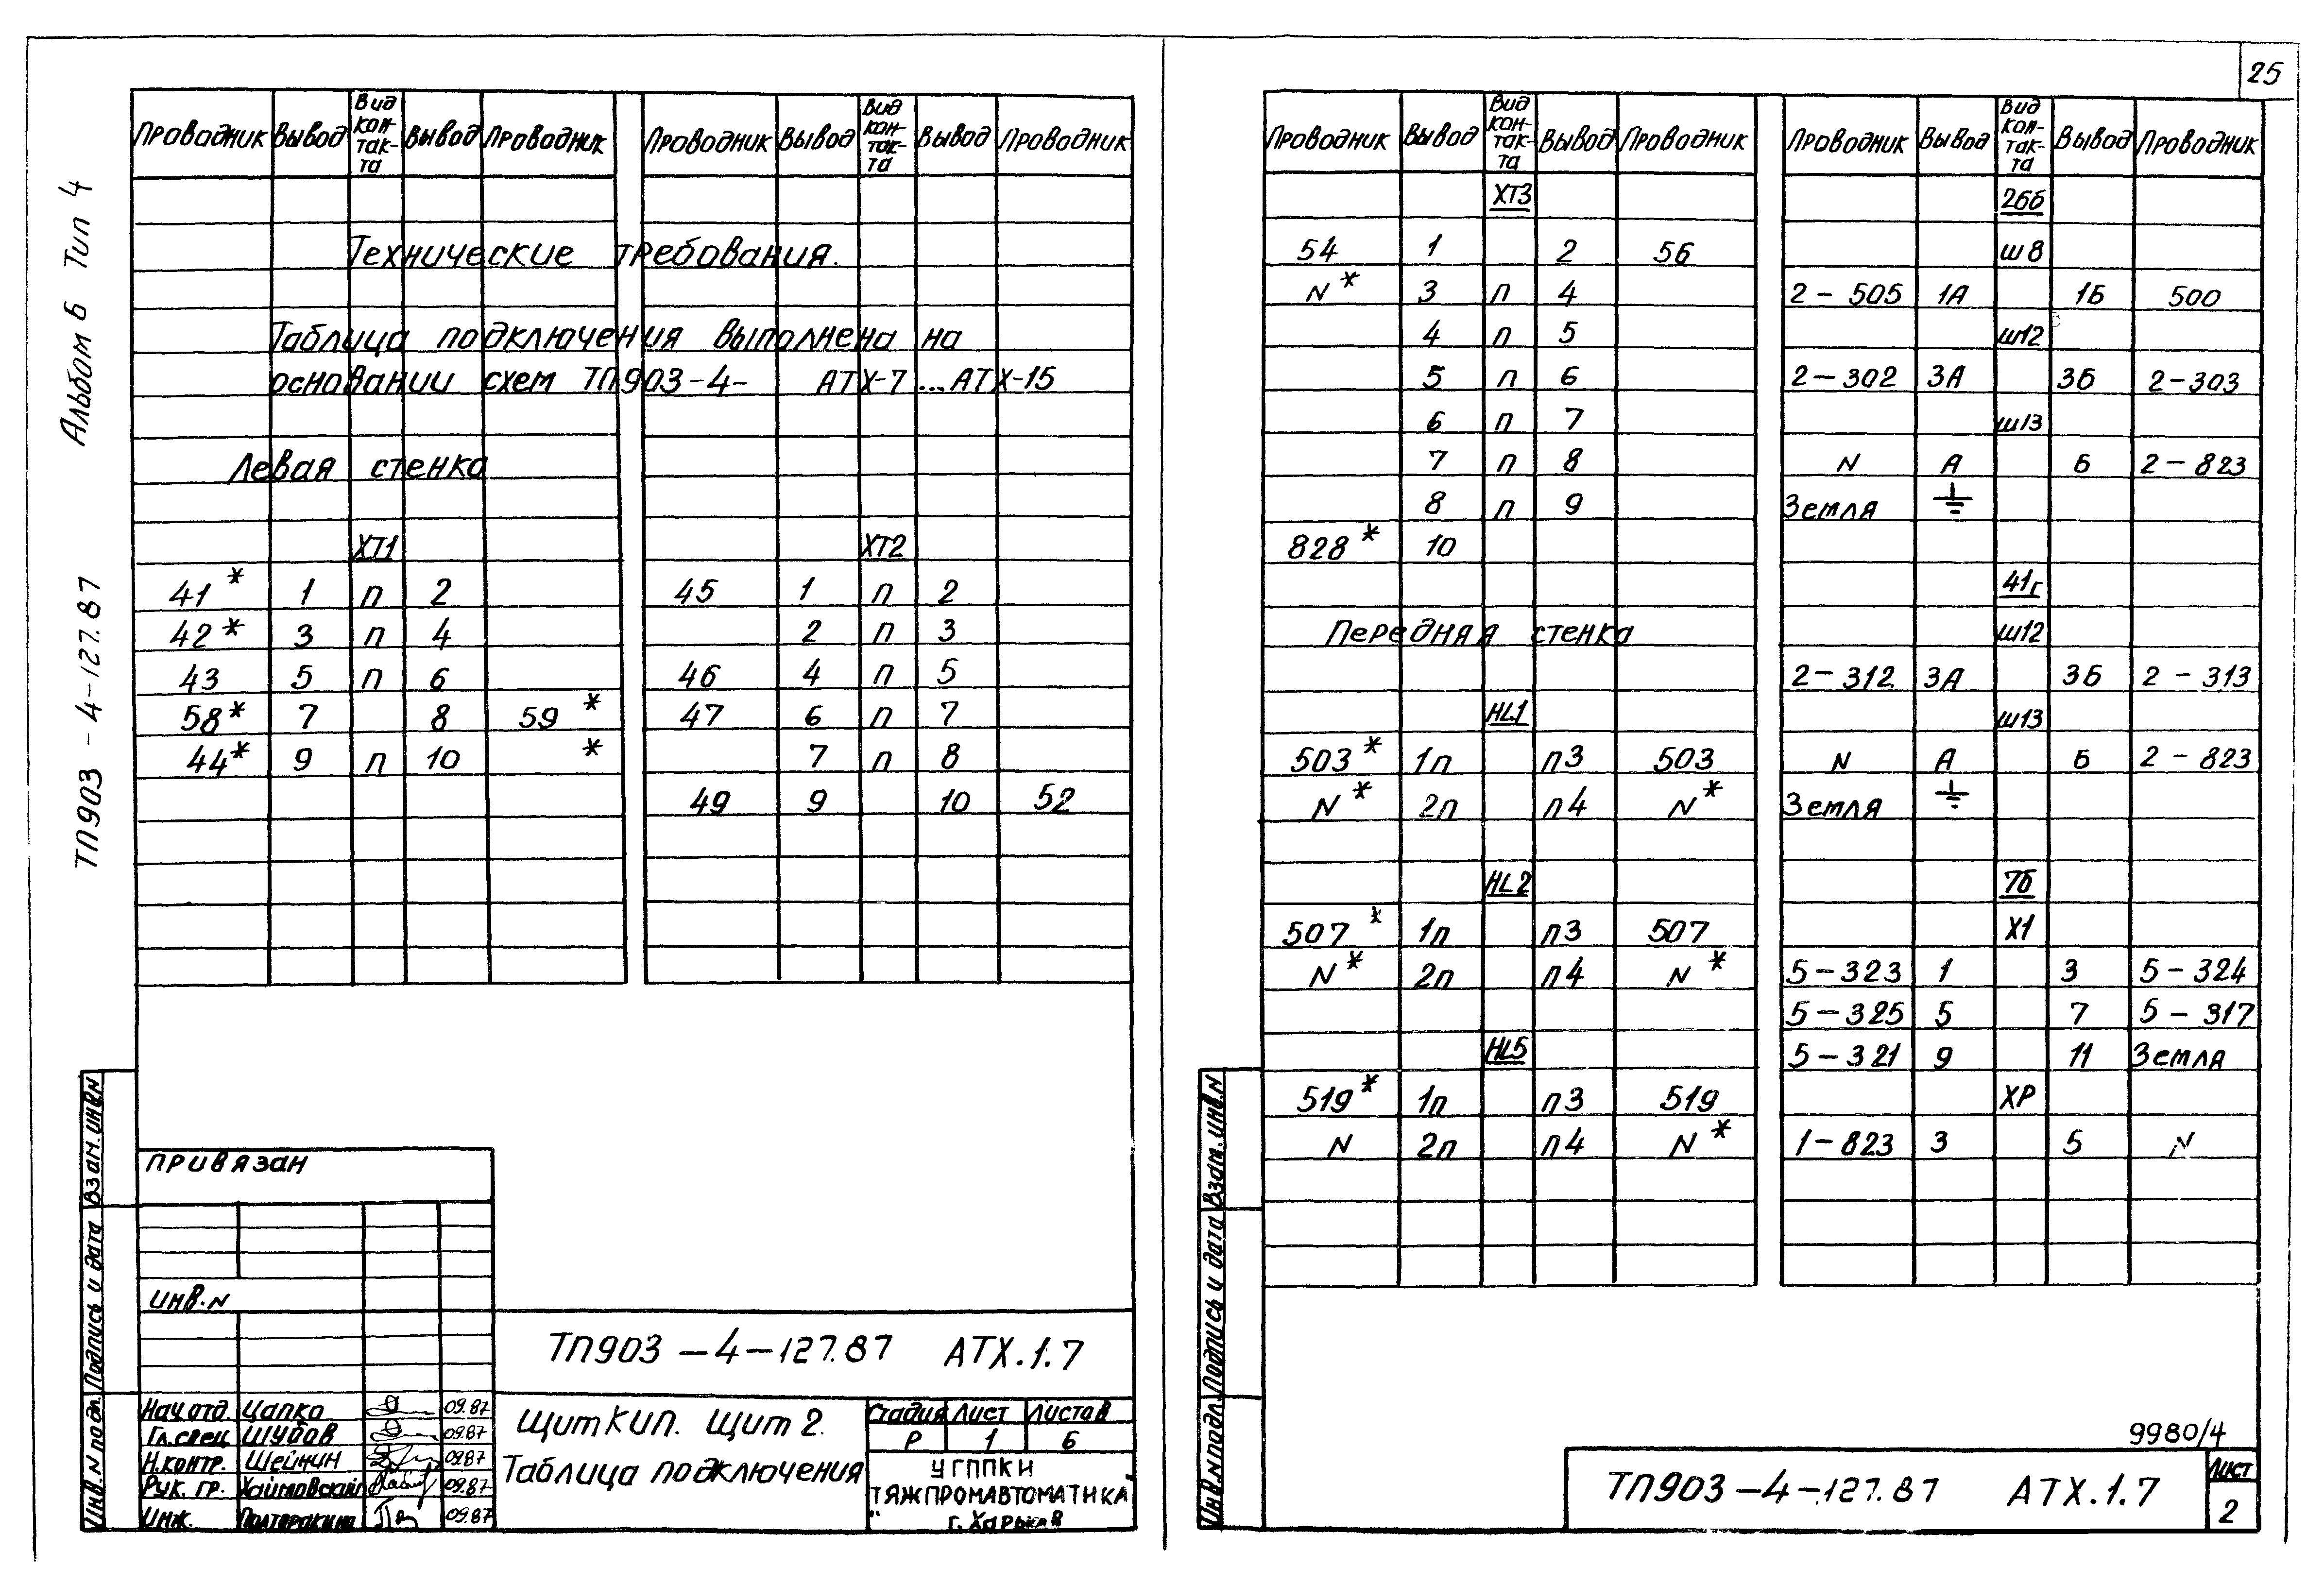 25
Альбом 6 Тип 4
ТП903-4-127.87
Проводник Вывод Вид кон-так-та Вывод Проводник Проводник Вывод Вид кон-так-та Вывод Проводник
Технические требования.
Таблица подключения выполнена на
основании схем ТП903-4- АТХ-7...АТХ-15
Левая стенка
ХТ1 ХТ2
41* 1 п 2 45 1 п 2
42* 3 п 4 2 п 3
43 5 п 6 46 4 п 5
58* 7 8 59* 47 6 п 7
44* 9 п 10 * 7 п 8
49 9 10 52
Привязан
Инв.N
Взам.инв.N
Подпись и дата
Инв.N подл.
ТП903-4-127.87 АТХ.1.7
Нач отд. Цапко 09.87
Гл.спец Шубов 09.87
Н.контр. Шейнин 09.87
Рук. гр. Хаймовский 09.87
Инж. Полторакина 09.87
Щит КИП. Щит 2.
Таблица подключения
Стадия Лист Листов
Р 1 6
УГППКИ
"ТЯЖПРОМАВТОМАТИКА"
г. Харьков
Проводник Вывод Вид кон-так-та Вывод Проводник Проводник Вывод Вид кон-так-та Вывод Проводник
ХТ3 26б
54 1 2 56 ш8
N* 3 п 4 2-505 1А 1Б 500
4 п 5 ш12
5 п 6 2-302 3А 3Б 2-303
6 п 7 ш13
7 п 8 N А Б 2-823
8 п 9 Земля ⏚
828* 10
41г
Передняя стенка ш12
2-312 3А 3Б 2-313
HL1 ш13
503* 1п п3 503 N А Б 2-823
N* 2п п4 N* Земля ⏚
HL2 7б
507* 1п п3 507 Х1
N* 2п п4 N* 5-323 1 3 5-324
5-325 5 7 5-317
HL5 5-321 9 11 Земля
519* 1п п3 519 ХР
N 2п п4 N* 1-823 3 5 N
Взам.инв.N
Подпись и дата
Инв.N подл.
9980/4
ТП903-4-127.87 АТХ.1.7
Лист
2